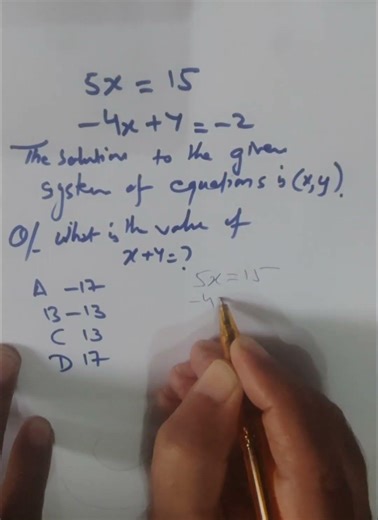 5x = 15
-4x + y = -2
The solution to the given
system of equations is (x, y).
Q/ What is the value of
x + y = ?
A -17
B -13
C 13
D 17
5x = 15
-4